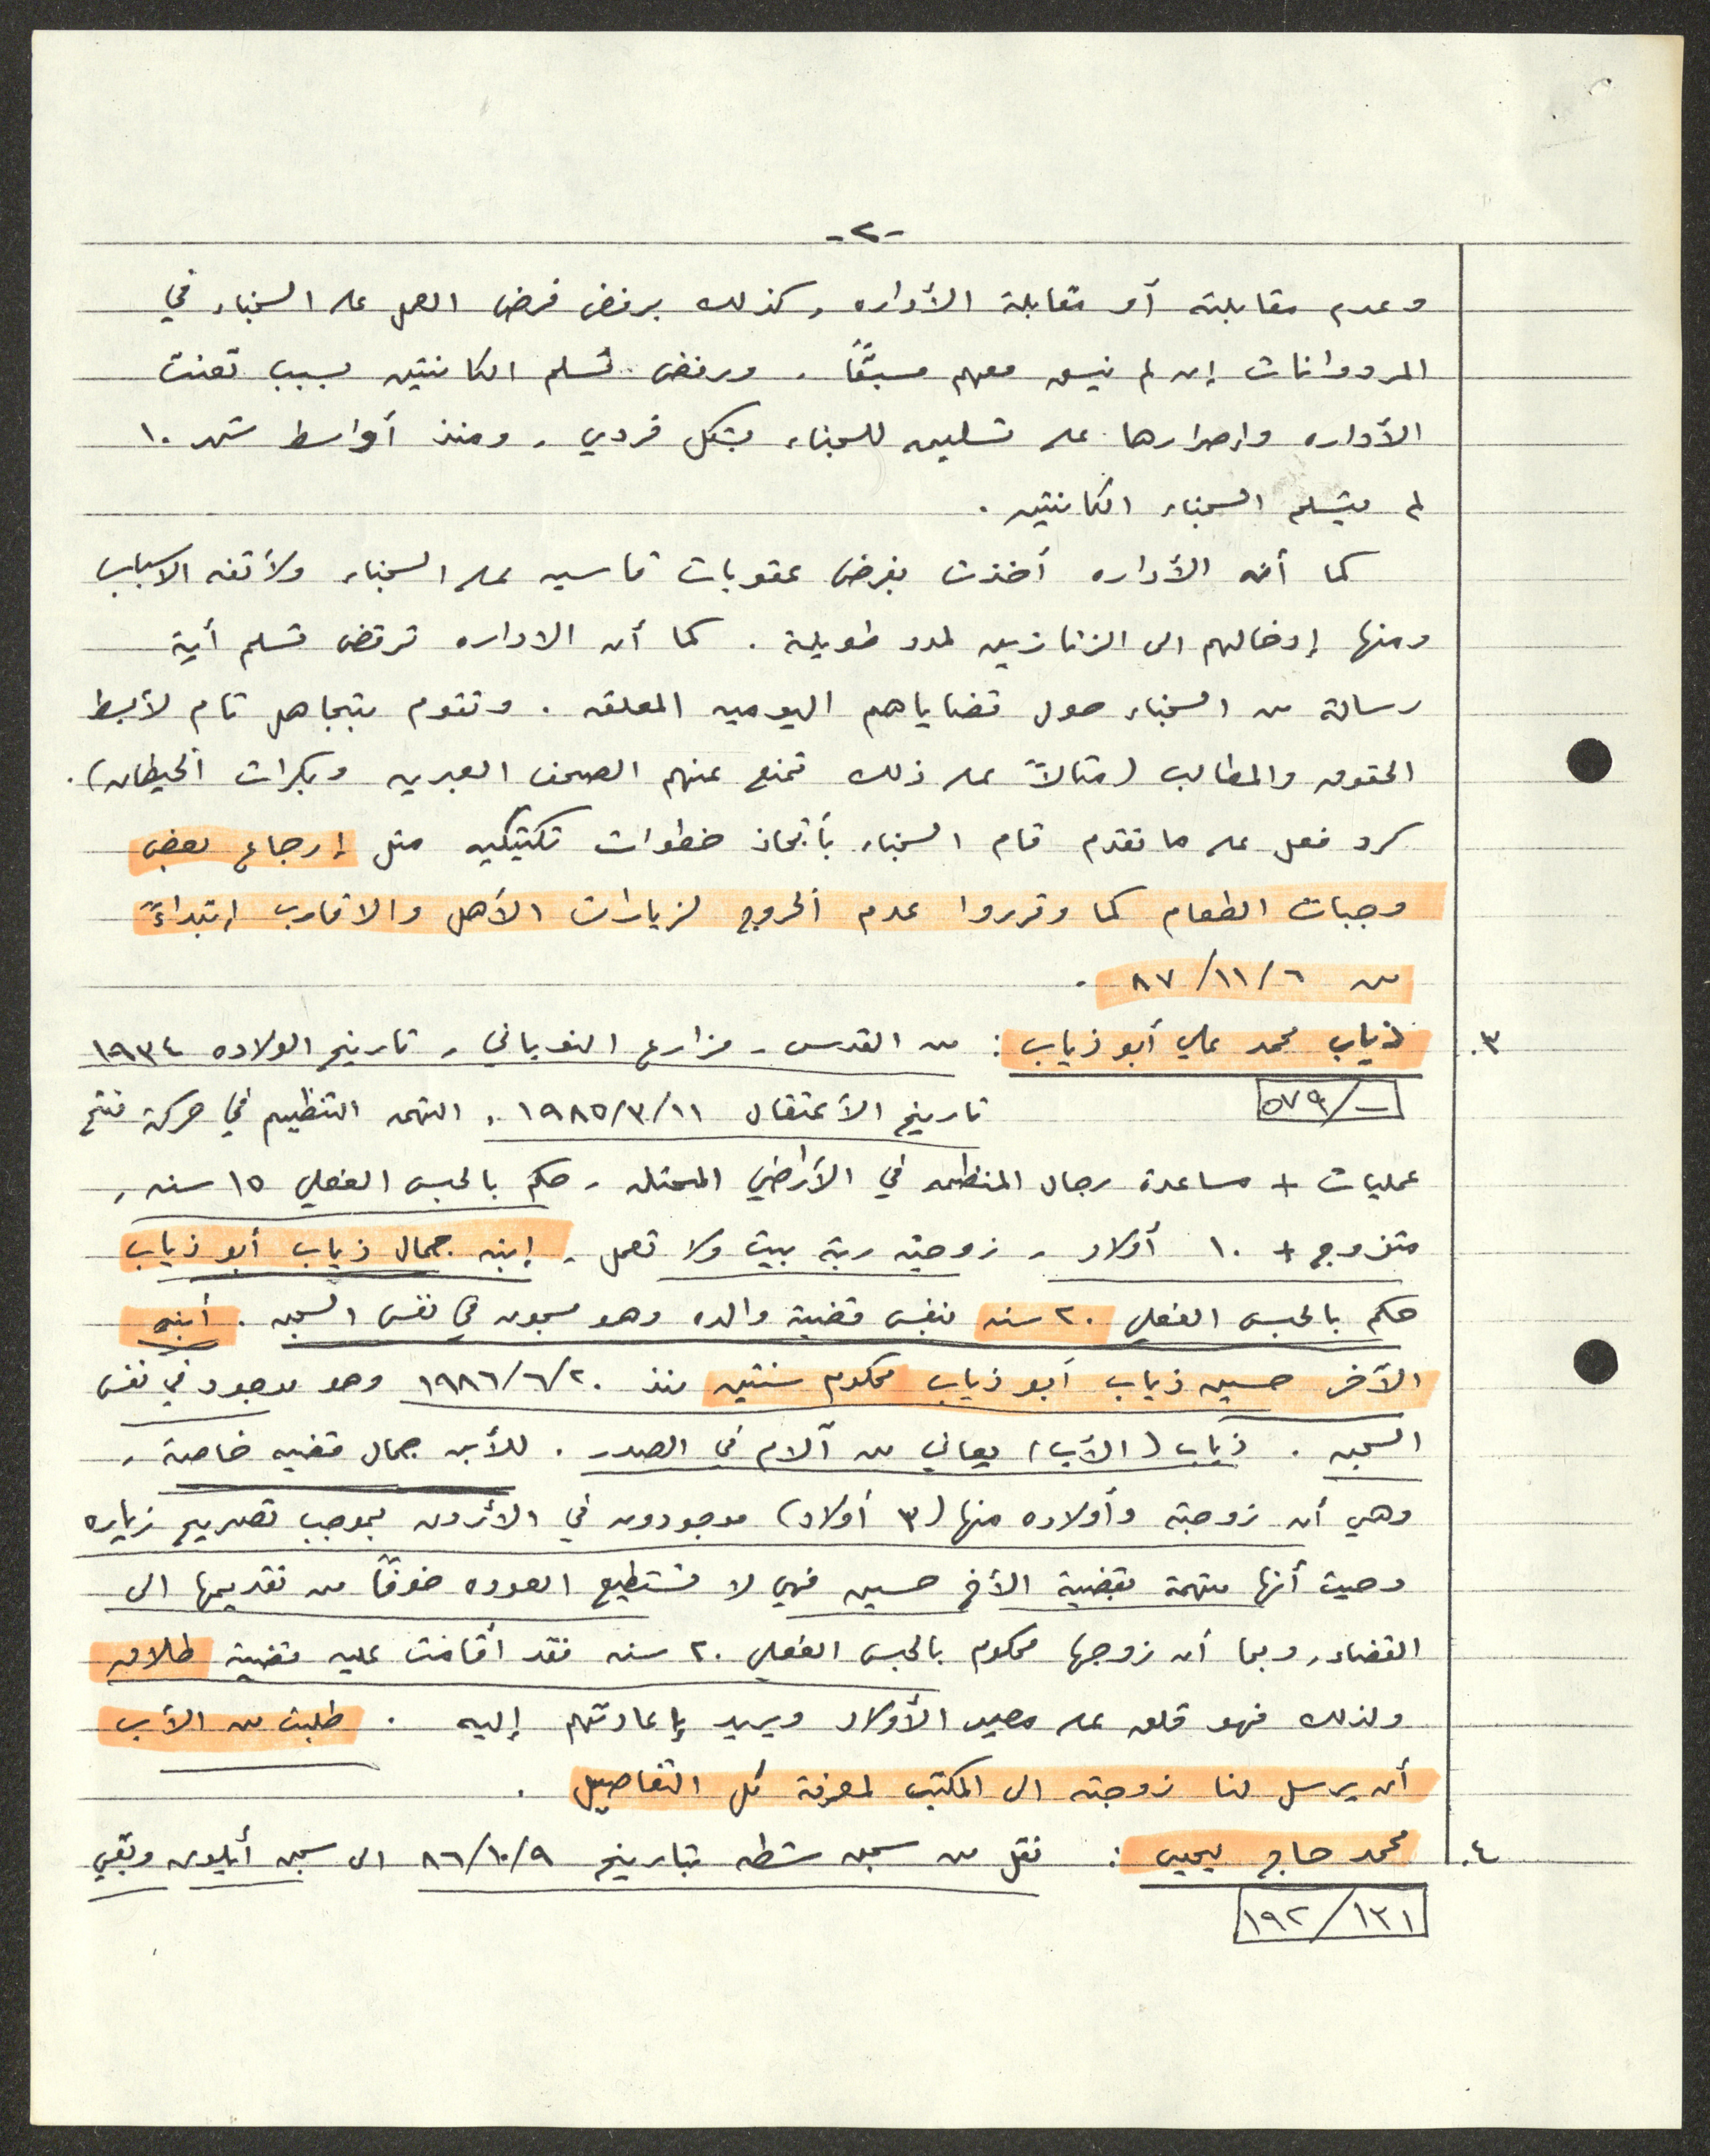 -٢-
وعدم مقابلته أو مقابلة الأداره، كذلك برفض فرض العمل على السجناء في
المردوانات إن لم ينسق معهم مسبقًا. ورفض تسلم الكانتين بسبب تعنت
الأداره وإصرارها على تسليمه للسجناء بشكل فردي، ومنذ أواسط شهر ١٠
لم يتسلم السجناء الكانتين.
كما أن الأداره أخذت بفرض عقوبات قاسيه على السجناء ولأتفه الاسباب
ومنها إدخالهم الى الزنازين لمدد طويلة. كما أن الاداره ترفض تسلم أية
رسالة من السجناء حول قضاياهم اليوميه المعلقه. وتقوم بتجاهل تام لأبسط
الحقوق والمطالب (مثالاً على ذلك تمنع عنهم الصحف العبريه وبكرات الخيطان).
كرد فعل على ما تقدم قام السجناء بأتخاذ خطوات تكتيكيه مثل إرجاع بعض
وجبات الطعام كما وقرروا عدم الخروج لزيارات الأهل والاقارب إبتداءً
من ٦/١١/٨٧.
٣. ذياب محمد علي أبو ذياب: من القدس - مزارع النوباني، تاريخ الولاده ١٩٣٤
٥٧٩/-
تاريخ الأعتقال ١١/٣/١٩٨٥، التهمه التنظيم في حركة فتح
عمليات + مساعدة رجال المنظمه في الأراضي المحتله، حكم بالحبس الفعلي ١٥ سنه،
متزوج + ١٠ أولاد، زوجته ربة بيت ولا تعمل، إبنه جمال ذياب أبو ذياب
حكم بالحبس الفعلي ٢٠ سنه بنفس قضية والده وهو مسجون في نفس السجن. أبنه
الآخر حسين ذياب أبو ذياب محكوم سنتين منذ ٢٠/٦/١٩٨٦ وهو موجود في نفس
السجن. ذياب (الأب) يعاني من آلام في الصدر. للأبن جمال قضيه خاصة،
وهي أن زوجته وأولاده منها (٣ أولاد) موجودون في الأردن بموجب تصريح زياره
وحيث أنها متهمة بقضية الأخ حسين فهي لا تستطيع العوده خوفًا من تقديمها الى
القضاء، وبما أن زوجها محكوم بالحبس الفعلي ٢٠ سنه فقد أقامت عليه قضية طلاق
ولذلك فهو قلق على مصير الأولاد ويريد إعادتهم إليه. طلبت من الأب
أن يرسل لنا زوجته الى المكتب لمعرفة كل التفاصيل.
٤. محمد حاج يحيى: نقل من سجن شطه بتاريخ ٩/١٠/٨٦ الى سجن أيلون وبقي
١٩٢/١٣١